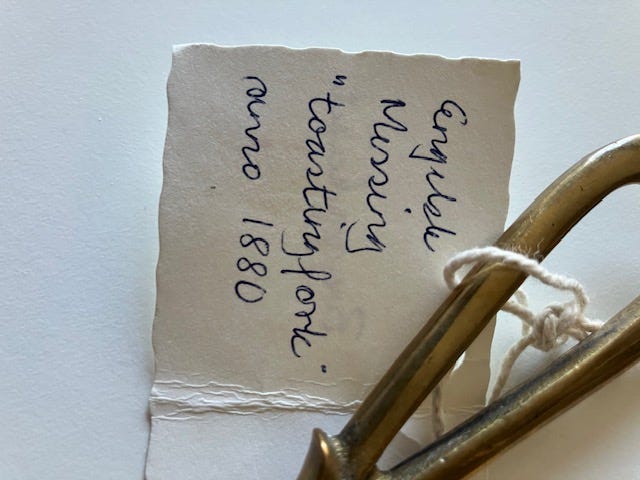 Engilsk
Messing
"toastingfork"
anno 1880